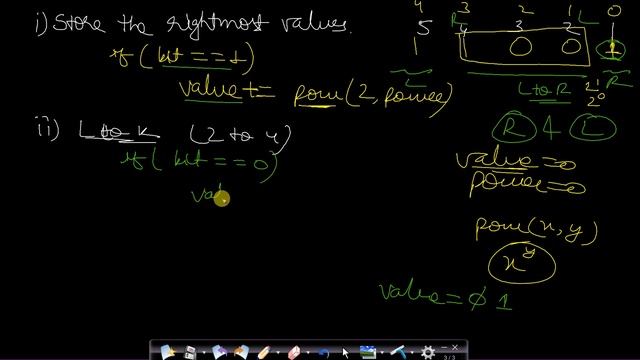 i) Store the rightmost values.
if (bit == 1)
value += pow(2, power)
L
ii) L to R (2 to 4)
if (bit == 0)
val
4 3 2 1 0
R L
5 4 3 2 1
1 1 0 0 1
L to R R
2^1
2^0
R 4 L
value = 0
power = 0
pow(x, y)
x^y
value = 0 1
3/3